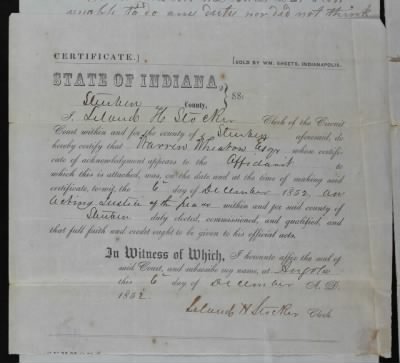 unable to do any duty nor did not think
CERTIFICATE.]
[SOLD BY WM. SHEETS, INDIANAPOLIS.
STATE OF INDIANA,
Steuben County, } SS:
I, Leland H Stocker Clerk of the Circuit
Court within and for the county of Steuben aforesaid, do
hereby certify that Warren Wheaton Esqr whose certifi-
cate of acknowledgment appears to the Affidavit to
which this is attached, was, on the date and at the time of making said
certificate, to-wit, the 6th day of December 1852, an
Acting Justice of the peace within and for said county of
Steuben duly elected, commissioned, and qualified, and
that full faith and credit ought to be given to his official acts.
In Witness of Which, I hereunto affix the seal of
said Court, and subscribe my name, at Angola
this 6th day of December A. D.
1852
Leland H Stocker Clerk